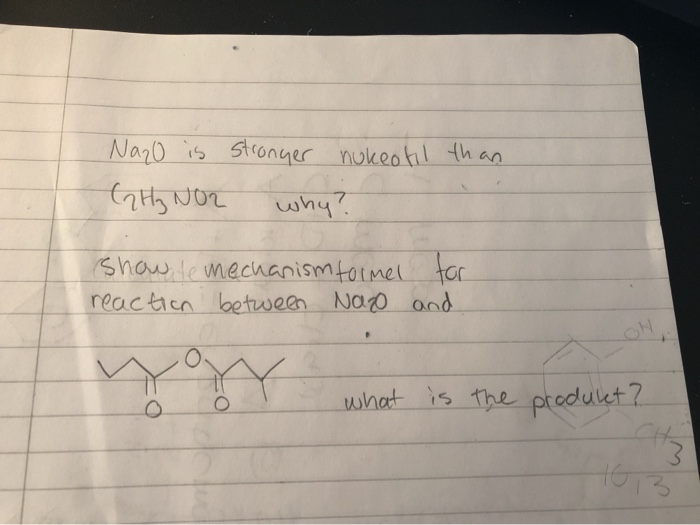 Na2O is stronger nukeofil than
C2H3NO2 why?
show mechanismformel for
reaction between Na2O and
O
O O
what is the produkt?
OH
CH3